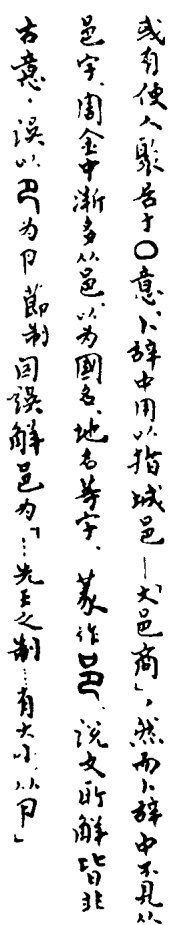 或有使人聚居于〇意、卜辞中用以指城邑—「大邑商」，然而卜辞中不见从
邑字、周金中渐多从邑、以为國名、地名等字、篆作邑、说文所解皆非
古意·误以㔾为卪節制因误解邑为「…先王之制…有大小、从卪」